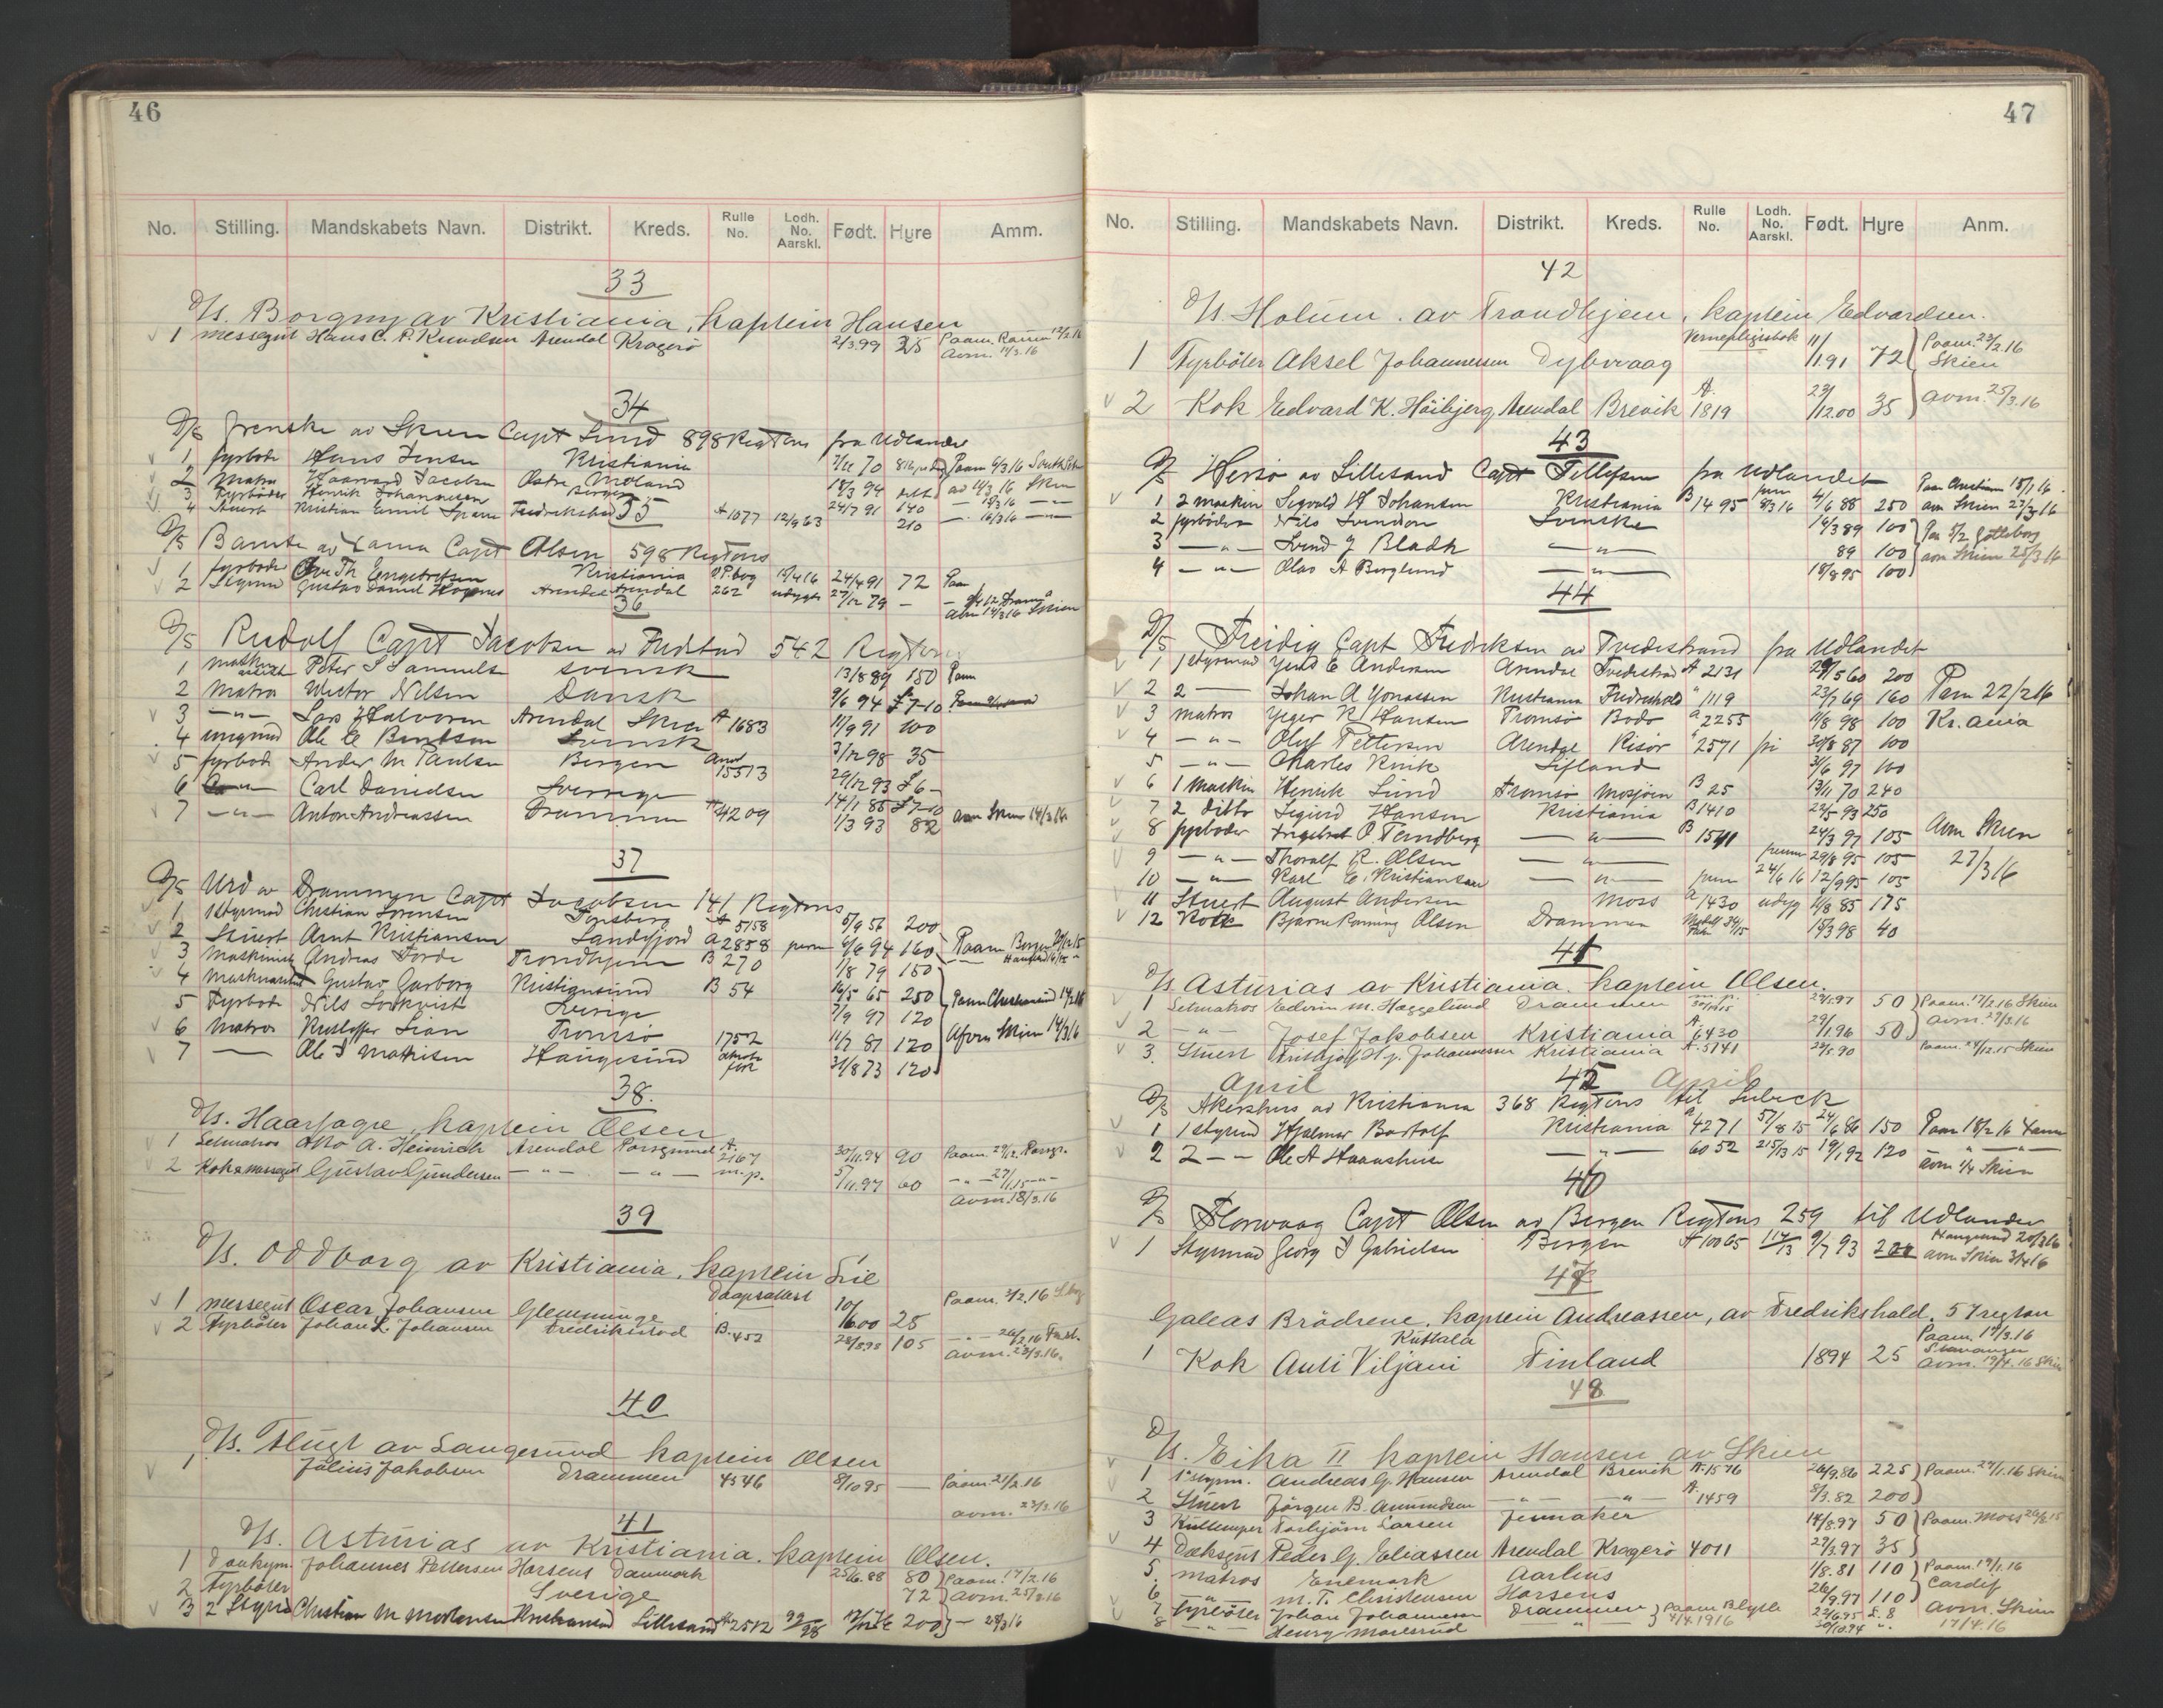 46
No. Stilling. Mandskabets Navn. Distrikt. Kreds. Rulle No. Lodh. No. Aarskl. Født. Hyre Amm.
33
D/s. Borgny av Kristiania, kaptein Hansen
1 messegut Hans C. P. Knudsen Arendal Kragerö 2/3.99 35 Paam. 12/2.16
Avm. 11/3.16
34
D/s av Skien Capt Lund 898 RegTons fra Udlandet
1 fyrbøder Hans Jensen Kristiania 70 Paam 6/3 16
2 Matros Haarvard Jacobsen Østre Moland 18/3 94 av 14/3 16 Skien
3 Fyrbøder Henrik Johannesen Bergen 24/7 91 140 — 15/3 16 —"—
4 Stuert Kristian Emil Fredrikshald A 1077 12/9 63 210 — 16/3 16 —"—
35
D/s Bamse av Capt Olsen 598 RegTons
1 fyrbøder Ove Th Engebretsen Kristiania 24/4 91 72 Paam
2 Styrmd Gustav Daniel Arendal Arendal 262 udygt 27/12 79 —
avm 14/3 16 Skien
36
D/s Rudolf Capt Jacobsen av Fredstad 542 RegTons
1 Peter S Samuels svensk 13/8 89 150 Paam
2 Matros Victor Nilsen Dansk 9/6 94 £7-10
3 —"— Lars Halvorsen Arendal Skien A 1683 11/9 91 100
4 ungmd Ole E Berntsen Svensk 3/12 98 35
5 fyrbød Anders M Paulsen Bergen 15513 29/12 93 £6-
6 —"— Carl Danielsen Sverrige 14/1 85 £7-10
7 —"— Anton Andreassen Drammen A 4209 1/3 93 82 avm Skien 14/3 16
37
D/s Urd av Drammen Capt Jacobsen 141 RegTons
1 1 Styrmd Christian Sørensen Tønsberg A 5158 5/9 56 200
2 Stuert Arnt Kristiansen Sandefjord A 2858 perm 6/6 94 160 Paam Bergen 29/12 15
3 Maskinist Andreas Forde Trondhjem B 270 1/8 79 150
4 Gustav Garborg Kristiansund B 54 16/5 65 250 Paam Christiansund 14/2 16
5 Fyrbød Nils Lovkvist Sverige 7/9 97 120
6 Matros Kristoffer Lian Tromsö 1752 11/7 81 120 Afm Skien 14/3 16
7 — Ole J Mathisen Haugesund 31/8 73 120
38.
D/s. Haarfagre, kaptein Olsen
1 Letmatros Otto A. Heinrich Arendal Porsgrund A. 2167 30/11.94 90 Paam. 29/12. Porsgr.
2 Kok & messegut Gustav Gundersen —"— —"— m.p. 5/11.97 60 —"— 27/11.15 —"—
avm. 18/3.16
39
D/s. Oddborg av Kristiania, kaptein Lie
1 messegut Oscar Johansen Glemminge Daapsattest 10/6.00 25 Paam. 3/2.16
2 Fyrböter Johan L. Johansen Fredrikstad B. 452 105 —"— 26/2.16 Fr.st.
avm. 23/3.16.
40
D/s. Flugt av Langesund kaptein Olsen
1 Julius Jakobsen Drammen 4546 8/10 95 — Paam. 21/2.16
avm. 23/3.16
41
D/s. Asturias av Kristiania. kaptein Olsen.
1 Johannes Pettersen Horsens Danmark 25/6.88 80 Paam. 17/2.16
2 Fyrböter Sverige 72 avm. 25/3.16
3 2 Styrmd Christian M Mortensen Kristiansand Lillesand A 2512 200 — 28/3 16
47
No. Stilling. Mandskabets Navn. Distrikt. Kreds. Rulle No. Lodh. No. Aarskl. Født. Hyre Anm.
42
D/s Holum. av Trondhjem, kaptein Edvardsen.
1 Fyrböter Aksel Johannessen Dybvaag Vernepligtsbok 11/11.91 72 Paam. 23/2.16 Skien
2 Kok Edvard K. Höibjerg Arendal Brevik A. 1819 23/12.00 35 avm. 25/3.16
43
D/s Hersö av Lillesand Capt Tellefsen fra Udlandet
1 2 maskin Sigvald H Johansen Kristiania B 1495 4/6 88 250 avm Skien 27/3 16
2 fyrbøder Nils Svendson Svenske 16/3 89 100 Paa 5/2 Gøtleborg
3 —"— Svend J Bladh —"— 89 100 avm Skien 25/3 16
4 —"— Olav A Berglund —"— 18/8 95 100
44
D/s Freidig Capt Fredriksen av Tvedestrand fra Udlandet
1 1 styrmand Jens E Andersen Arendal Tvedestrand A 2131 29/5 60 200
2 2 — Johan A Jonassen Kristiania Fredrikshald " 1119 23/7 69 160 Paam 22/2 16
3 Matros Jeger R Hansen Tromsö Bodø A 2255 11/8 98 100 Kr.ania
4 —"— Olaf Pettersen Arendal Risør " 2571 fri 30/8 87 100
5 —"— Charles Rink Lifland 3/6 97 100
6 1 Maskin Henrik Lund Tromsø Mosjøen B 25 13/11 70 240
7 2 ditto Sigurd Hansen Kristiania B 1410 22/5 93 250
8 fyrbøder Engebret P. Terndberg —"— B 1541 24/3 97 105 Avm Skien
9 —"— Thoralf R. Olsen —"— perm 29/8 95 105 27/3 16
10 —"— Karl E. Kristiansen —"— perm 24/6 16 12/9 95 105
11 Stuert August Andersen Moss A 1430 udyg 11/8 85 175
12 Kok Bjarne Rønning Olsen Drammen 15/3 98 40
41
D/s Asturias av Kristiania. kaptein Olsen.
1 Letmatros Edvin M. Haggelund Drammen m.p. 50 Paam. 17/2.16 Skien
2 —"— Josef Jakobsen Kristiania A. 6430 29/1.96 50 avm. 29/3.16
3. Stuert Johannessen Kristiania A. 5741 24/5 90 Paam. 24/12.15 Skien
April 45 April
D/s Akershus av Kristiania 368 RegTons til Lubeck
1 1 styrmd Hjalmar Bartolf Kristiania A 4271 57/8 15 24/6 86 150 Paam 18/2 16
2 2 — Ole A Haanshus —"— 6052 215/13 15 19/1 92 120 —"— —"—
avm 1/4 Skien
46
D/s Florvaag Capt Olsen av Bergen RegTons 259 til Udlandet
1 Styrmand Georg J Gabrielsen Bergen A 10065 9/7 93 Haugesund 20/3 16
avm Skien 31/4 16
47
Galeas Brödrene, kaptein Andreassen, av Fredrikshald. 57 regton
1 Kok Anti Viljani Kuttala Finland 1894 25 Paam. 17/3.16 Stavanger
avm. 19/4.16 Skien
48
D/s. Eika II kaptein Hansen av Skien
1 1ste styrm. Andreas G. Hansen Arendal Brevik A. 1576 26/9.86 225 Paam. 24/1.16 Skien
2 Stuert Jörgen B. Amundsen —"— —"— A. 1459 8/3.82 200
3 Kullemper Torbjörn Larsen Jevnaker 14/8.97 50 Paam. Moss
4 Dæksgut Peder G. Eliassen Arendal Kragerö 4011 29/3.97 35
5. matros Enemark Aarhus 1/8.81 110 Paam. 19/1.16
6 —"— M. T. Christensen Horsens 26/9.97 110 Cardif
7 Fyrböter Johan Johannessen Drammen Paam Blythe 22/6.95 £.8 avm. Skien
8 —"— Henry —"— 4/4.1916 30/10.94 ". 17/4.16